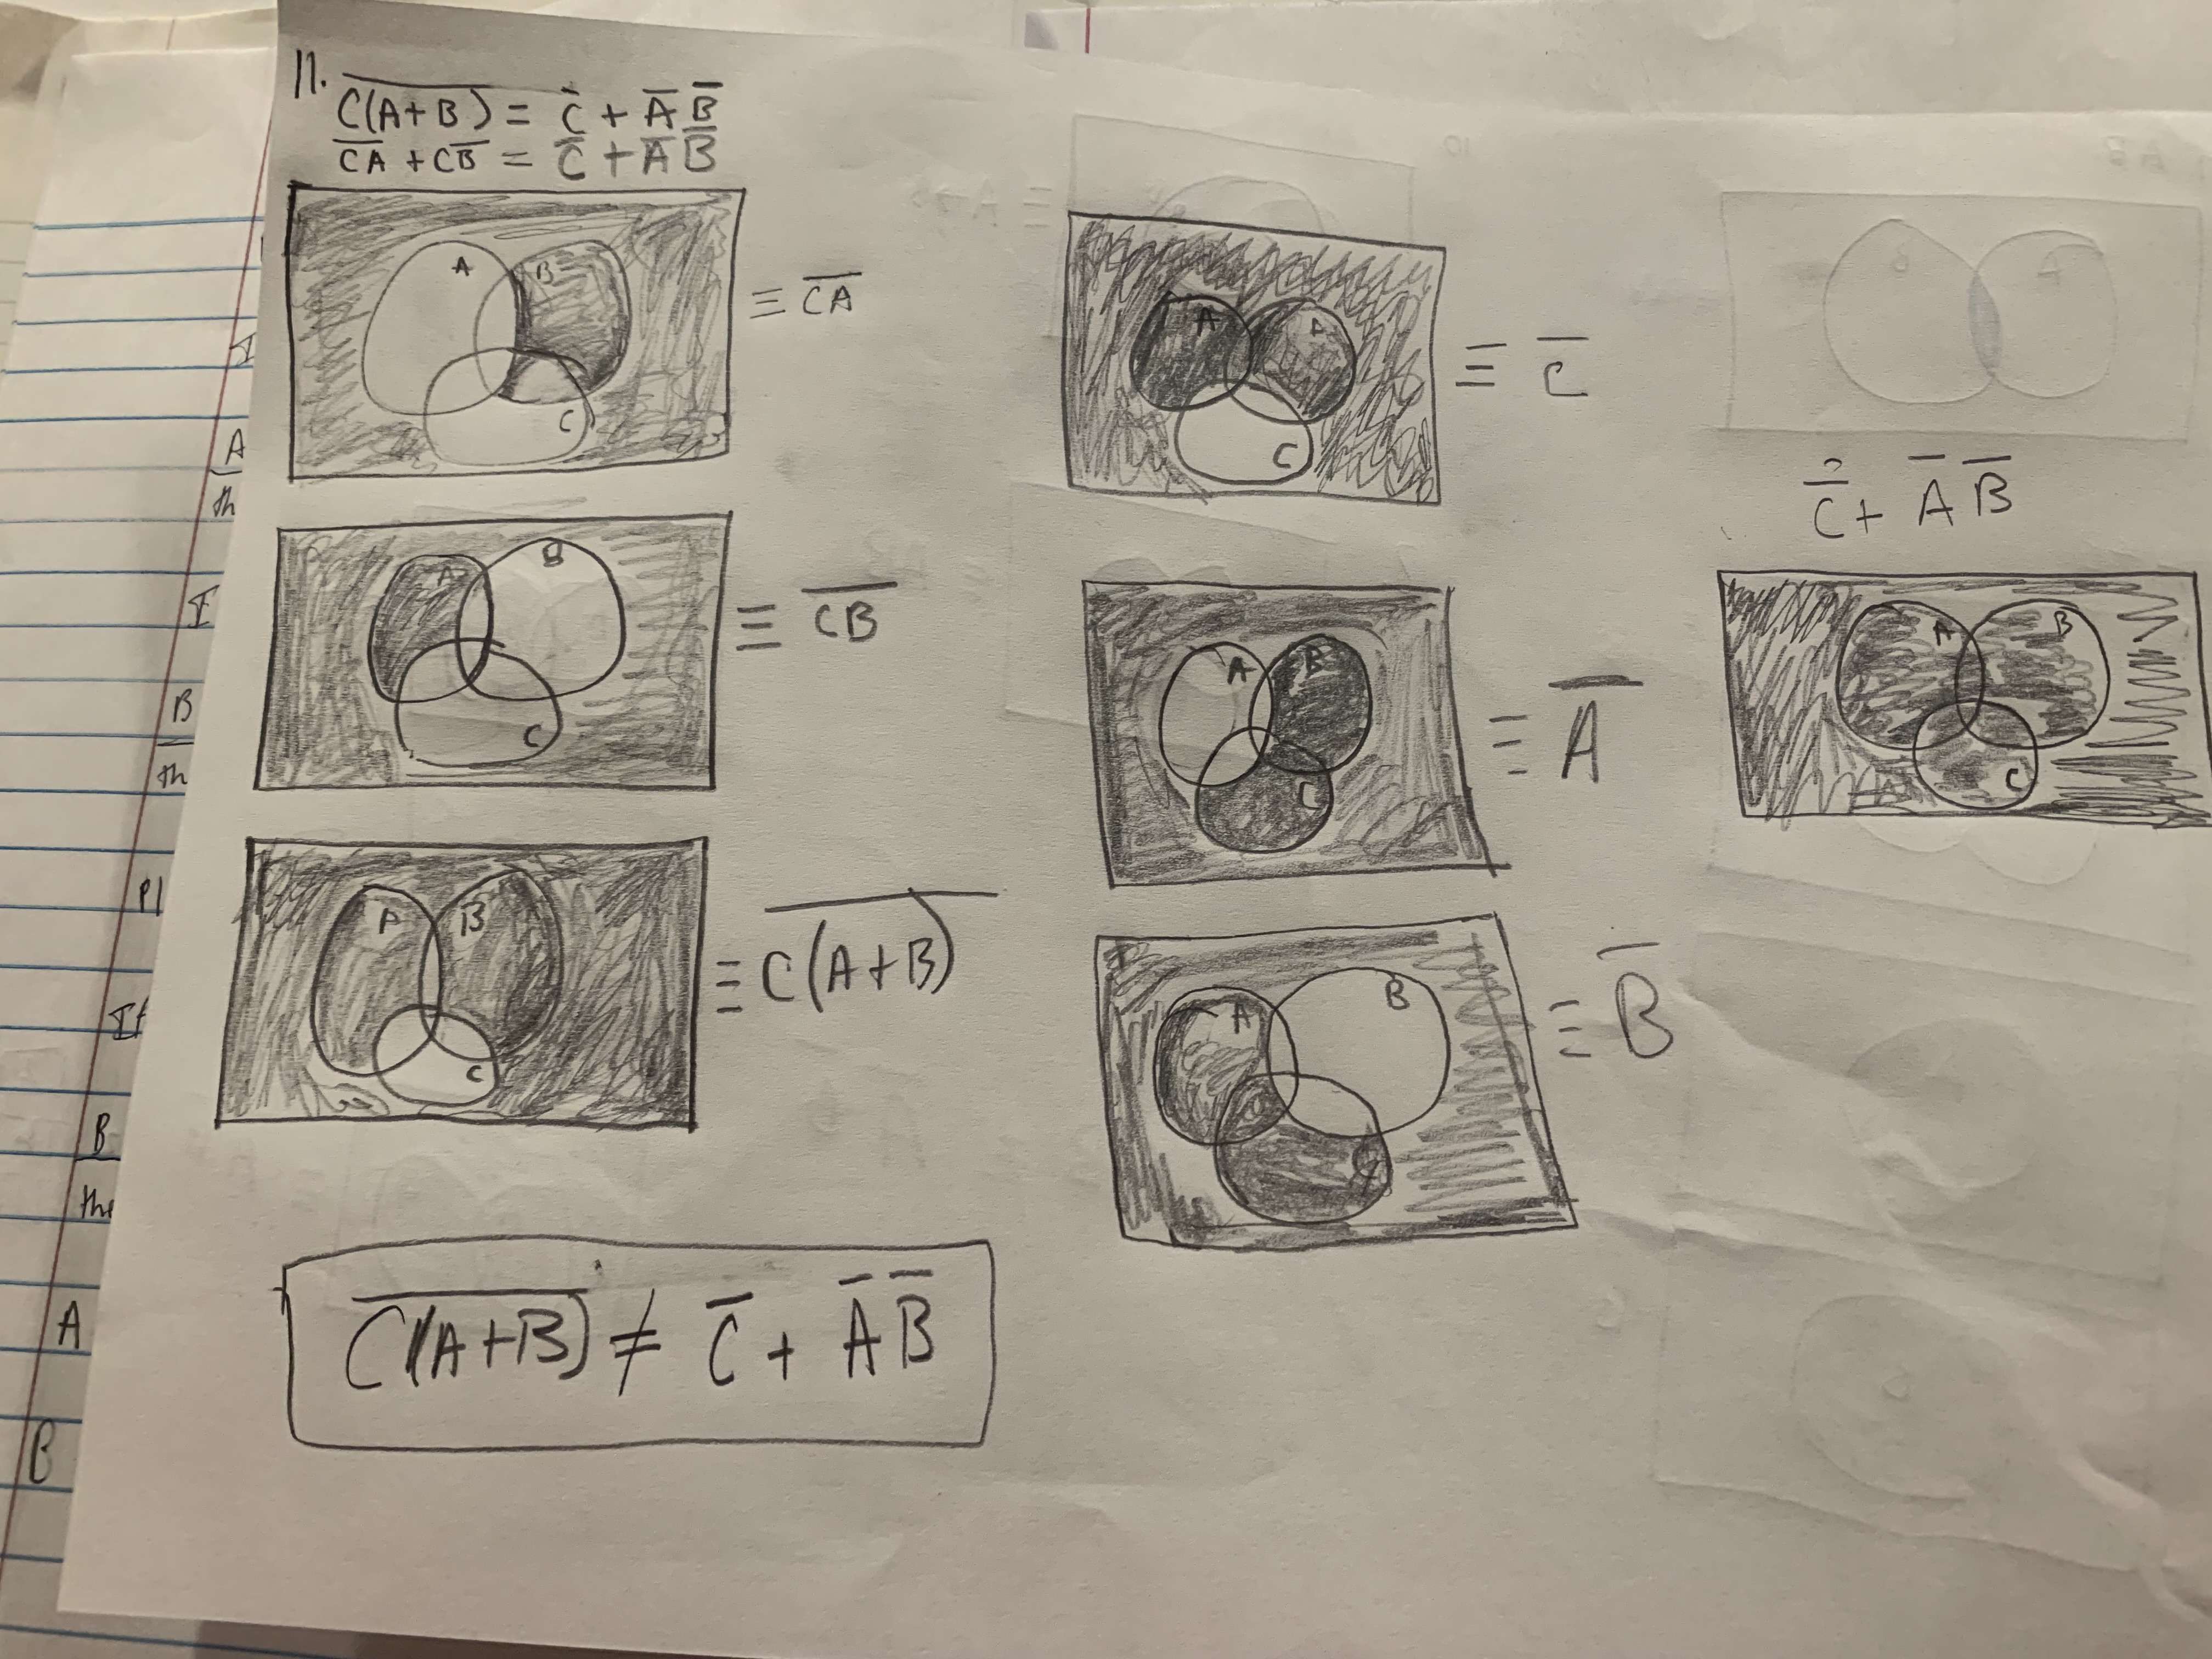 11. \overline{C(A+B)} = \bar{C} + \bar{A} \bar{B}
\overline{CA} + \overline{CB} = \bar{C} + \bar{A} \bar{B}
A B C
≡ \overline{CA}
A B C
≡ \overline{CB}
A B C
≡ \overline{C(A+B)}
\overline{C(A+B)} ≠ \bar{C} + \bar{A} \bar{B}
A A C
≡ \bar{C}
A B C
≡ \bar{A}
A B
≡ \bar{B}
\bar{C} + \bar{A} \bar{B}
A B C
I
A
th
I
B
th
PI
If
B
the
A
B